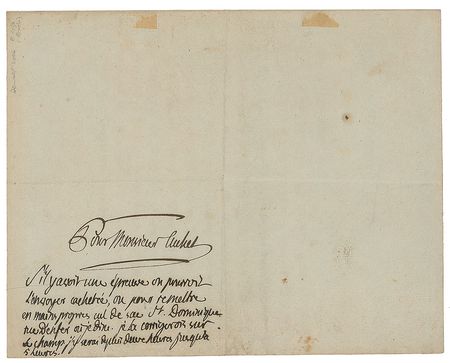 Pour Monsieur Cuchet
S'il y avoit une épreuve on pourroit
l'envoyer cachetée, ou pour remettre
en mains propres cul de sac St. Dominique
où je dine. je la corrigerois sur
le champ, j'y serai depuis deux heures jusqu'à
5 heures.